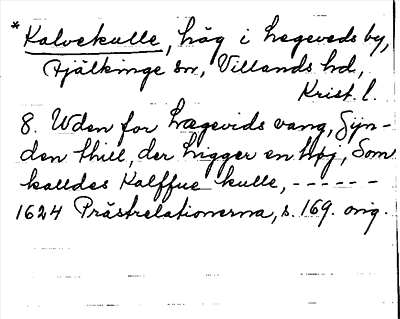 * Kalvekulle, hög i Legeveds by,
Fjälkinge sn, Villands hd,
Krist. l.
8. Uden for Legevids vang, Syn-
den thill, der ligger en Høj, Som
kalldes Kalffue kulle, - - - - - -
1624 Prästrelationerna, s. 169. orig.